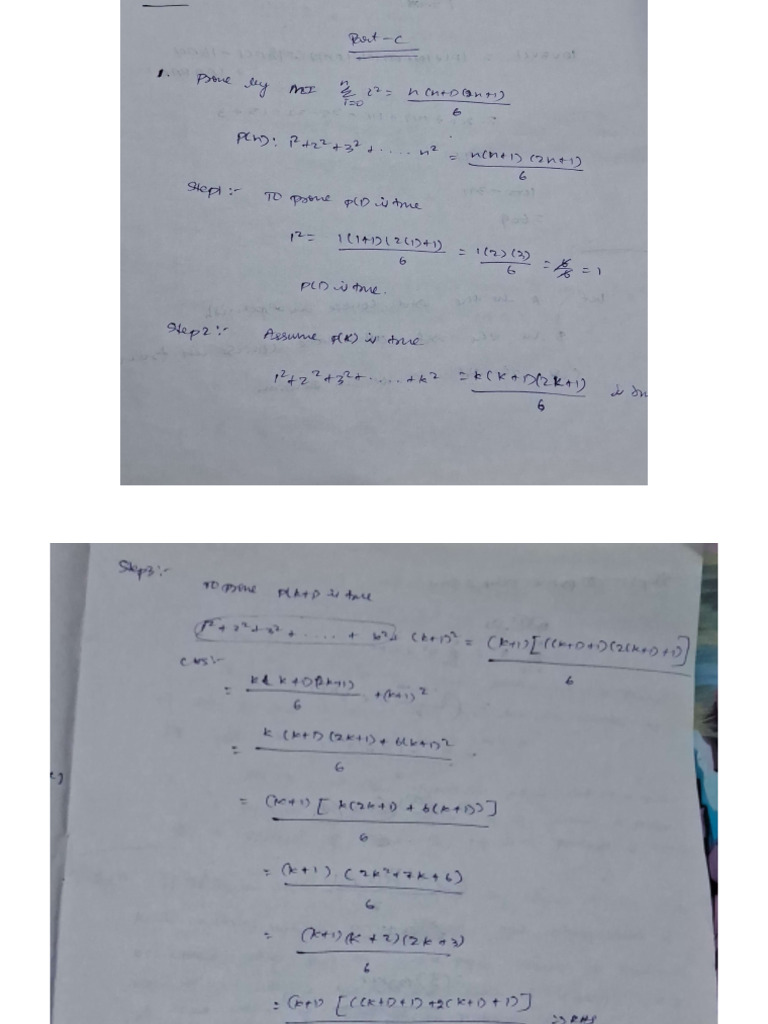 Part-C
1. Prove by MI n∑i=0 i² = n(n+1)(2n+1)/6
P(n): 1²+2²+3²+.....n² = n(n+1)(2n+1)/6
Step1:- To prove P(1) is true
1² = 1(1+1)(2(1)+1)/6 = 1(2)(3)/6 = 6/6 = 1
P(1) is true.
Step2:- Assume P(K) is true
1²+2²+3²+.....+k² = k(k+1)(2k+1)/6 is
Step3:-
To prove P(k+1) is true
1²+2²+3²+.....+k²+(k+1)² = (k+1)[((k+1)+1)(2(k+1)+1)]/6
LHS:-
= k(k+1)(2k+1)/6 +(k+1)²
= k(k+1)(2k+1)+6(k+1)²/6
= (k+1)[k(2k+1)+6(k+1)]/6
= (k+1)(2k²+7k+6)/6
= (k+1)(k+2)(2k+3)/6
= (k+1)[((k+1)+1)+2(k+1)+1)] =) RHS